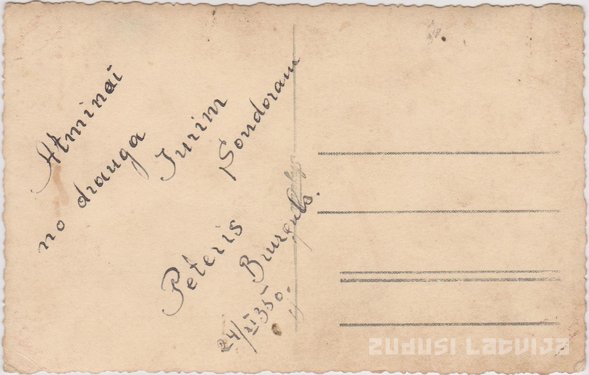 Atminai
no drauga
Jurim
Sondoram
Pēteris
24/VI 35
zudusi Latvija